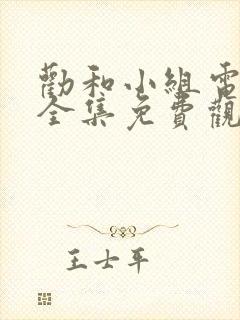 勸和小組電
全集免費觀
王士平